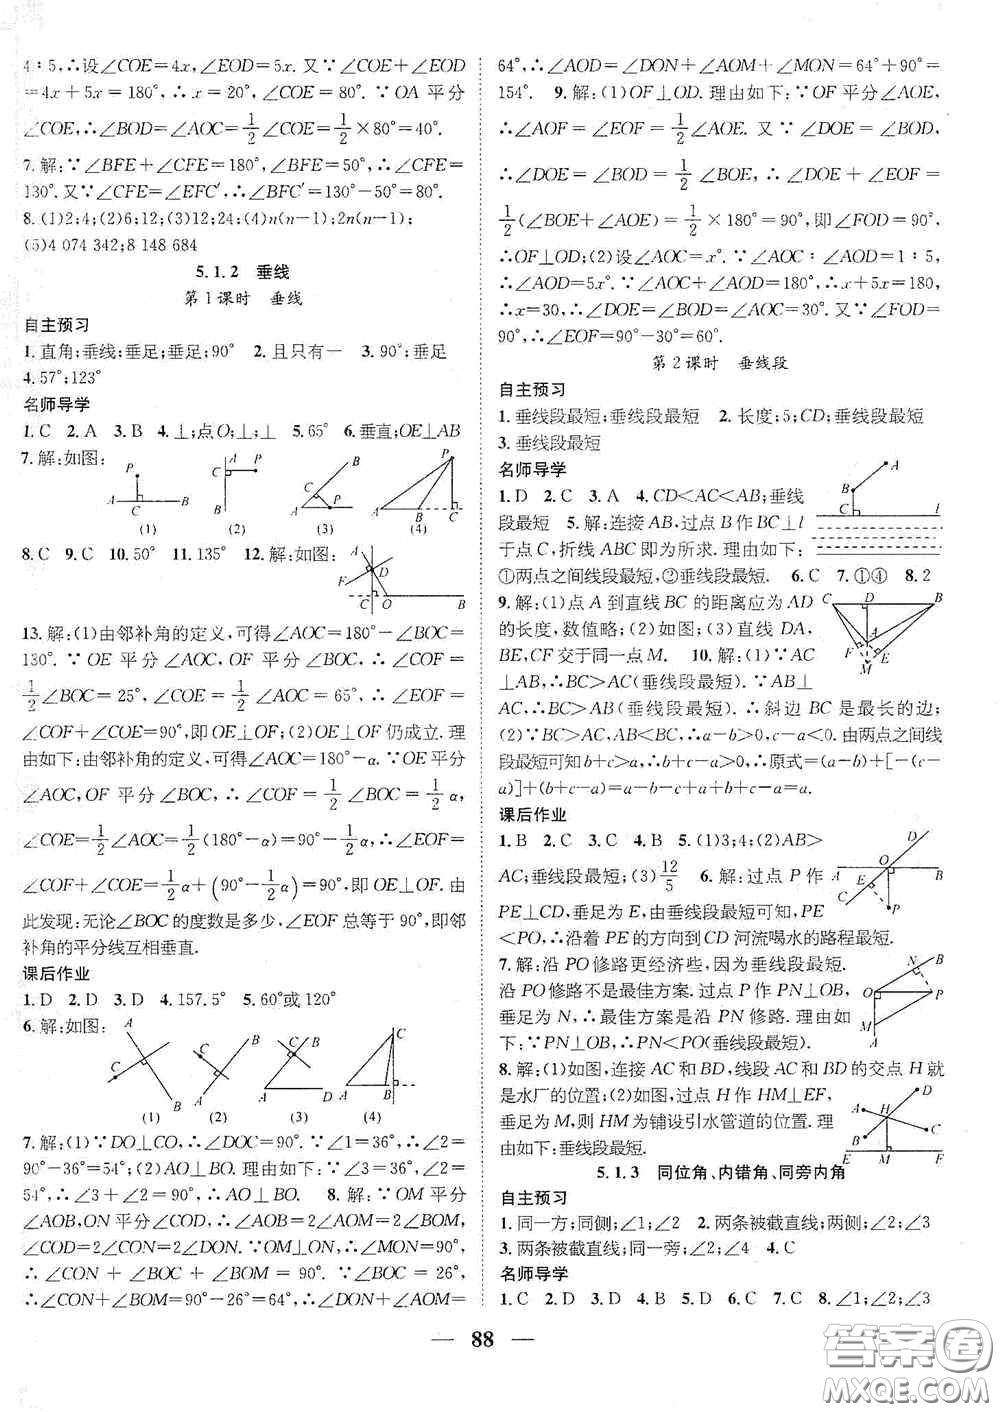 4∶5,∴设∠COE=4x,∠EOD=5x. 又∵∠COE+∠EOD
=4x+5x=180°,∴x=20°,∠COE=80°. ∵OA 平分
∠COE,∴∠BOD=∠AOC=1/2∠COE=1/2×80°=40°.
7. 解:∵∠BFE+∠CFE=180°,∠BFE=50°,∴∠CFE=
130°. 又∵∠CFE=∠EFC′,∴∠BFC′=130°-50°=80°.
8. (1)2;4;(2)6;12;(3)12;24;(4)n(n-1);2n(n-1);
(5)4 074 342;8 148 684
5.1.2 垂线
第1课时 垂线
自主预习
1. 直角;垂线;垂足;垂足;90° 2. 且只有一 3. 90°;垂足
4. 57°;123°
名师导学
1. C 2. A 3. B 4. ⊥;点O;⊥;⊥ 5. 65° 6. 垂直;OE⊥AB
7. 解:如图:
P A C B (1)
A C P B (2)
B C A P (3)
P A B C (4)
8. C 9. C 10. 50° 11. 135° 12. 解:如图:
A F D C O B
13. 解:(1)由邻补角的定义,可得∠AOC=180°-∠BOC=
130°. ∵OE 平分∠AOC,OF 平分∠BOC,∴∠COF=
1/2∠BOC=25°,∠COE=1/2∠AOC=65°,∴∠EOF=
∠COF+∠COE=90°,即OE⊥OF;(2)OE⊥OF仍成立. 理
由如下:由邻补角的定义,可得∠AOC=180°-α. ∵OE 平
分∠AOC,OF 平分∠BOC,∴∠COF=1/2∠BOC=1/2α,
∠COE=1/2∠AOC=1/2(180°-α)=90°-1/2α,∴∠EOF=
∠COF+∠COE=1/2α+(90°-1/2α)=90°,∴OE⊥OF. 由
此发现:无论∠BOC的度数是多少,∠EOF总等于90°,即邻
补角的平分线互相垂直.
课后作业
1. D 2. D 3. D 4. 157.5° 5. 60°或120°
6. 解:如图:
A C B (1)
B C A (2)
B C A D (3)
C A B (4)
7. 解:(1)∵DO⊥CO,∴∠DOC=90°. ∵∠1=36°,∴∠2=
90°-36°=54°;(2)AO⊥BO. 理由如下:∵∠3=36°,∠2=
54°,∴∠3+∠2=90°,∴AO⊥BO. 8. 解:∵OM平分
∠AOB,ON平分∠COD,∴∠AOB=2∠AOM=2∠BOM,
∠COD=2∠CON=2∠DON. ∵OM⊥ON,∴∠MON=90°,
∴∠CON+∠BOC+∠BOM=90°. ∵∠BOC=26°,
∴∠CON+∠BOM=90°-26°=64°,∴∠DON+∠AOM=
64°,∴∠AOD=∠DON+∠AOM+∠MON=64°+90°=
154°. 9. 解:(1)OF⊥OD. 理由如下:∵OF平分∠AOE,
∴∠AOF=∠EOF=1/2∠AOE. 又∵∠DOE=∠BOD,
∴∠DOE=∠BOD=1/2∠BOE,∴∠DOE+∠EOF=
1/2(∠BOE+∠AOE)=1/2×180°=90°,即∠FOD=90°,
∴OF⊥OD;(2)设∠AOC=x°. ∵∠AOC∶∠AOD=1∶5,
∴∠AOD=5x°. ∵∠AOC+∠AOD=180°,∴x+5x=180,
∴x=30,∴∠DOE=∠BOD=∠AOC=30°. 又∵∠FOD=
90°,∴∠EOF=90°-30°=60°.
第2课时 垂线段
自主预习
1. 垂线段最短;垂线段最短 2. 长度;5;CD;垂线段最短
3. 垂线段最短
名师导学
1. D 2. C 3. A 4. CD<AC<AB;垂线
段最短 5. 解:连接AB,过点B作BC⊥l
于点C,折线ABC即为所求. 理由如下:
①两点之间线段最短,②垂线段最短. 6. C 7. ①④ 8. 2
A B C l
9. 解:(1)点A到直线BC的距离应为AD
的长度,数值略;(2)如图;(3)直线DA,
BE,CF交于同一点M. 10. 解:(1)∵AC
⊥AB,∴BC>AC(垂线段最短). ∵AB⊥
AC,∴BC>AB(垂线段最短). ∴斜边BC是最长的边;
(2)∵BC>AC,AB>AC,∴a-b>0,c-a<0. 由两点之间线
段最短可知b+c>a,∴b+c-a>0,∴原式=(a-b)+[-(c-
a)]+(b+c-a)=a-b-c+a+b+c-a=a.
C D B F A E M
课后作业
1. B 2. C 3. C 4. B 5. (1)3;4;(2)AB>
AC;垂线段最短;(3)12/5 6. 解:过点P作
PE⊥CD,垂足为E,由垂线段最短可知,PE
<PO,∴沿着PE的方向到CD河流喝水的路程最短.
D O A E B C P
7. 解:沿PO修路更经济些,因为垂线段最短.
沿PO修路不是最佳方案. 过点P作PN⊥OB,
垂足为N,∴最佳方案是沿PN修路. 理由如
下:∵PN⊥OB,∴PN<PO(垂线段最短).
N B O P M A
8. 解:(1)如图,连接AC和BD,线段AC和BD的交点H就
是水厂的位置;(2)如图,过点H作HM⊥EF,
垂足为M,则HM为铺设引水管道的位置. 理
由如下:垂线段最短.
D A H B C E M F
5.1.3 同位角、内错角、同旁内角
自主预习
1. 同一方;同侧;∠1;∠2 2. 两条被截直线;两侧;∠2;∠3
3. 两条被截直线;同一旁;∠2;∠4 4. C
名师导学
1. C 2. D 3. D 4. D 5. B 6. C 7. C 8. ∠1;∠2;∠3
88
答案圈
MXQE.COM